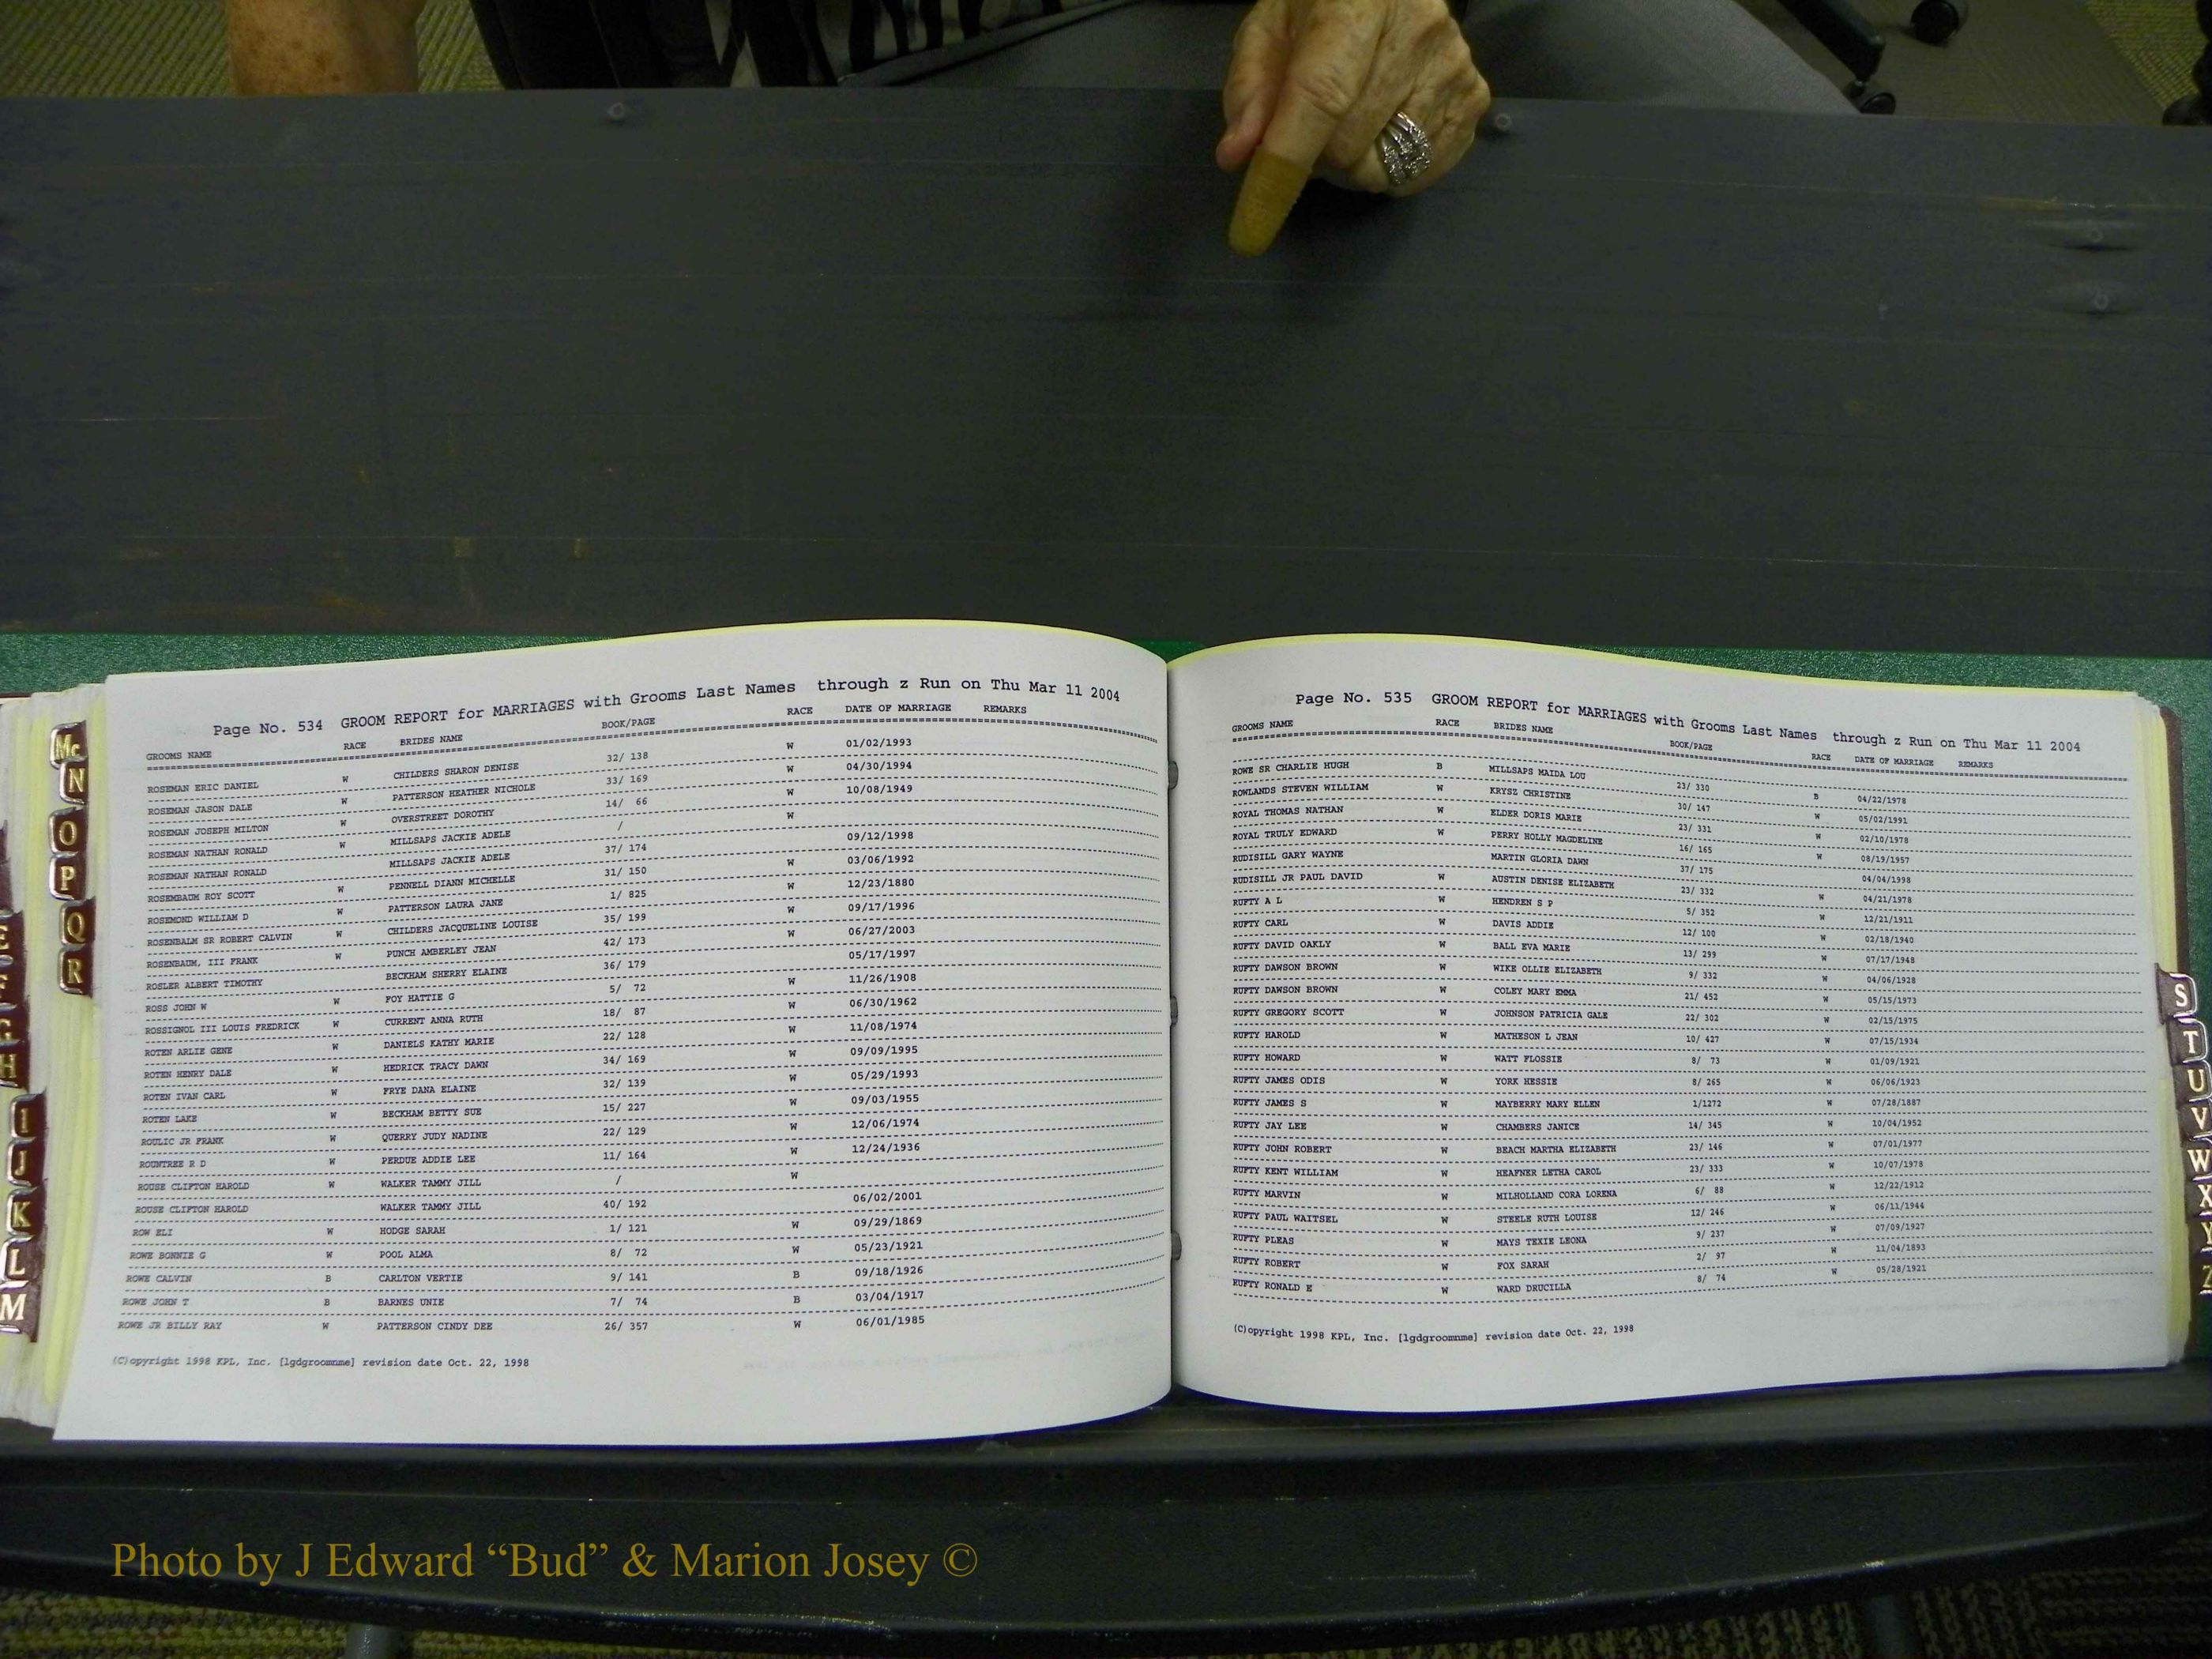 Page No. 534 GROOM REPORT for MARRIAGES with Grooms Last Names through z Run on Thu Mar 11 2004
GROOMS NAME RACE BRIDES NAME BOOK/PAGE RACE DATE OF MARRIAGE REMARKS
ROSEMAN ERIC DANIEL W CHILDERS SHARON DENISE 32/ 138 W 01/02/1993
ROSEMAN JASON DALE W PATTERSON HEATHER NICHOLE 33/ 169 W 04/30/1994
ROSEMAN JOSEPH MILTON W OVERSTREET DOROTHY 14/ 66 W 10/08/1949
ROSEMAN NATHAN RONALD W MILLSAPS JACKIE ADELE / W
ROSEMAN NATHAN RONALD MILLSAPS JACKIE ADELE 37/ 174 09/12/1998
ROSEMBAUM ROY SCOTT W PENNELL DIANN MICHELLE 31/ 150 W 03/06/1992
ROSEMOND WILLIAM D W PATTERSON LAURA JANE 1/ 825 W 12/23/1880
ROSENBALM SR ROBERT CALVIN W CHILDERS JACQUELINE LOUISE 35/ 199 W 09/17/1996
ROSENBAUM, III FRANK W PUNCH AMBERLEY JEAN 42/ 173 W 06/27/2003
ROSLER ALBERT TIMOTHY BECKHAM SHERRY ELAINE 36/ 179 05/17/1997
ROSS JOHN W W FOY HATTIE G 5/ 72 W 11/26/1908
ROSSIGNOL III LOUIS FREDRICK W CURRENT ANNA RUTH 18/ 87 W 06/30/1962
ROTEN ARLIE GENE W DANIELS KATHY MARIE 22/ 128 W 11/08/1974
ROTEN HENRY DALE W HEDRICK TRACY DAWN 34/ 169 W 09/09/1995
ROTEN IVAN CARL W FRYE DANA ELAINE 32/ 139 W 05/29/1993
ROTEN LAKE W BECKHAM BETTY SUE 15/ 227 W 09/03/1955
ROULIC JR FRANK W QUERRY JUDY NADINE 22/ 129 W 12/06/1974
ROUNTREE R D W PERDUE ADDIE LEE 11/ 164 W 12/24/1936
ROUSE CLIFTON HAROLD W WALKER TAMMY JILL / W
ROUSE CLIFTON HAROLD WALKER TAMMY JILL 40/ 192 06/02/2001
ROW ELI W HODGE SARAH 1/ 121 W 09/29/1869
ROWE BONNIE G W POOL ALMA 8/ 72 W 05/23/1921
ROWE CALVIN B CARLTON VERTIE 9/ 141 B 09/18/1926
ROWE JOHN T B BARNES UNIE 7/ 74 B 03/04/1917
ROWE JR BILLY RAY W PATTERSON CINDY DEE 26/ 357 W 06/01/1985
(C)opyright 1998 KPL, Inc. [lgdgroomnme] revision date Oct. 22, 1998
Page No. 535 GROOM REPORT for MARRIAGES with Grooms Last Names through z Run on Thu Mar 11 2004
GROOMS NAME RACE BRIDES NAME BOOK/PAGE RACE DATE OF MARRIAGE REMARKS
ROWE SR CHARLIE HUGH B MILLSAPS MAIDA LOU 23/ 330 B 04/22/1978
ROWLANDS STEVEN WILLIAM W KRYSZ CHRISTINE 30/ 147 W 05/02/1991
ROYAL THOMAS NATHAN W ELDER DORIS MARIE 23/ 331 W 02/10/1978
ROYAL TRULY EDWARD W PERRY HOLLY MAGDELINE 16/ 165 W 08/19/1957
RUDISILL GARY WAYNE MARTIN GLORIA DAWN 37/ 175 04/04/1998
RUDISILL JR PAUL DAVID W AUSTIN DENISE ELIZABETH 23/ 332 W 04/21/1978
RUFTY A L W HENDREN S P 5/ 352 W 12/21/1911
RUFTY CARL W DAVIS ADDIE 12/ 100 W 02/18/1940
RUFTY DAVID OAKLY W BALL EVA MARIE 13/ 299 W 07/17/1948
RUFTY DAWSON BROWN W WIKE OLLIE ELIZABETH 9/ 332 W 04/06/1928
RUFTY DAWSON BROWN W COLEY MARY EMMA 21/ 452 W 05/15/1973
RUFTY GREGORY SCOTT W JOHNSON PATRICIA GALE 22/ 302 W 02/15/1975
RUFTY HAROLD W MATHESON L JEAN 10/ 427 W 07/15/1934
RUFTY HOWARD W WATT FLOSSIE 8/ 73 W 01/09/1921
RUFTY JAMES ODIS W YORK HESSIE 8/ 265 W 06/06/1923
RUFTY JAMES S W MAYBERRY MARY ELLEN 1/1272 W 07/28/1887
RUFTY JAY LEE W CHAMBERS JANICE 14/ 345 W 10/04/1952
RUFTY JOHN ROBERT W BEACH MARTHA ELIZABETH 23/ 146 W 07/01/1977
RUFTY KENT WILLIAM W HEAFNER LETHA CAROL 23/ 333 W 10/07/1978
RUFTY MARVIN W MILHOLLAND CORA LORENA 6/ 88 W 12/22/1912
RUFTY PAUL WAITSEL W STEELE RUTH LOUISE 12/ 246 W 06/11/1944
RUFTY PLEAS W MAYS TEXIE LEONA 9/ 237 W 07/09/1927
RUFTY ROBERT W FOX SARAH 2/ 97 W 11/04/1893
RUFTY RONALD E W WARD DRUCILLA 8/ 74 W 05/28/1921
(C)opyright 1998 KPL, Inc. [lgdgroomnme] revision date Oct. 22, 1998
Mc
N
O
P
Q
R
E
F
G
H
I
J
K
L
M
S
T
U
V
W
X
Y
Z
Photo by J Edward “Bud” & Marion Josey ©